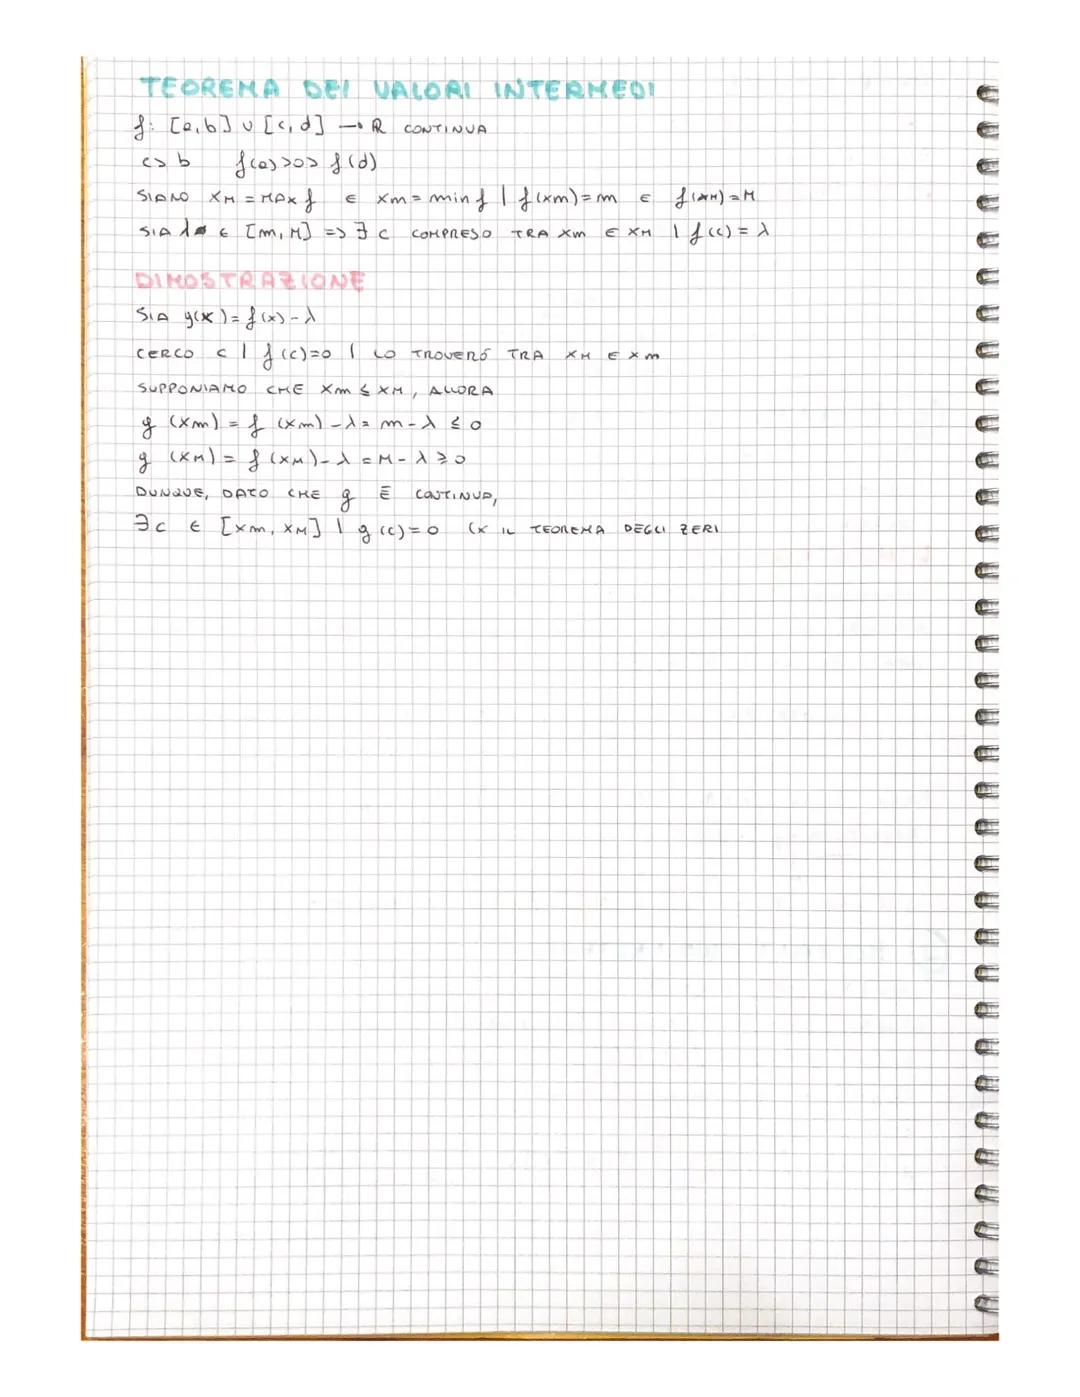 TEOREMA DEI VALORI INTERMEDI
f: [a,b] ∪ [c,d] → R CONTINUA
c > b f(a) > 0 > f(d)
SIANO XM = MAX f E Xm = min f | f(xm) = m E f(XM) = M
SIA λ ∈ [m, M] => ∃ c COMPRESO TRA Xm E XM | f(c) = λ
DIMOSTRAZIONE
SIA g(x) = f(x) - λ
CERCO c | f(c)=0 | LO TROVERÓ TRA XM E Xm
SUPPONIAMO CHE Xm ≤ XM, ALLORA
g (Xm) = f (Xm) - λ = m - λ ≤ 0
g (XM) = f (XM) - λ = M - λ ≥ 0
DUNQUE, DATO CHE g È CONTINUA,
∃ c ∈ [Xm, XM] | g(c) = 0 (X IL TEOREMA DEGLI ZERI